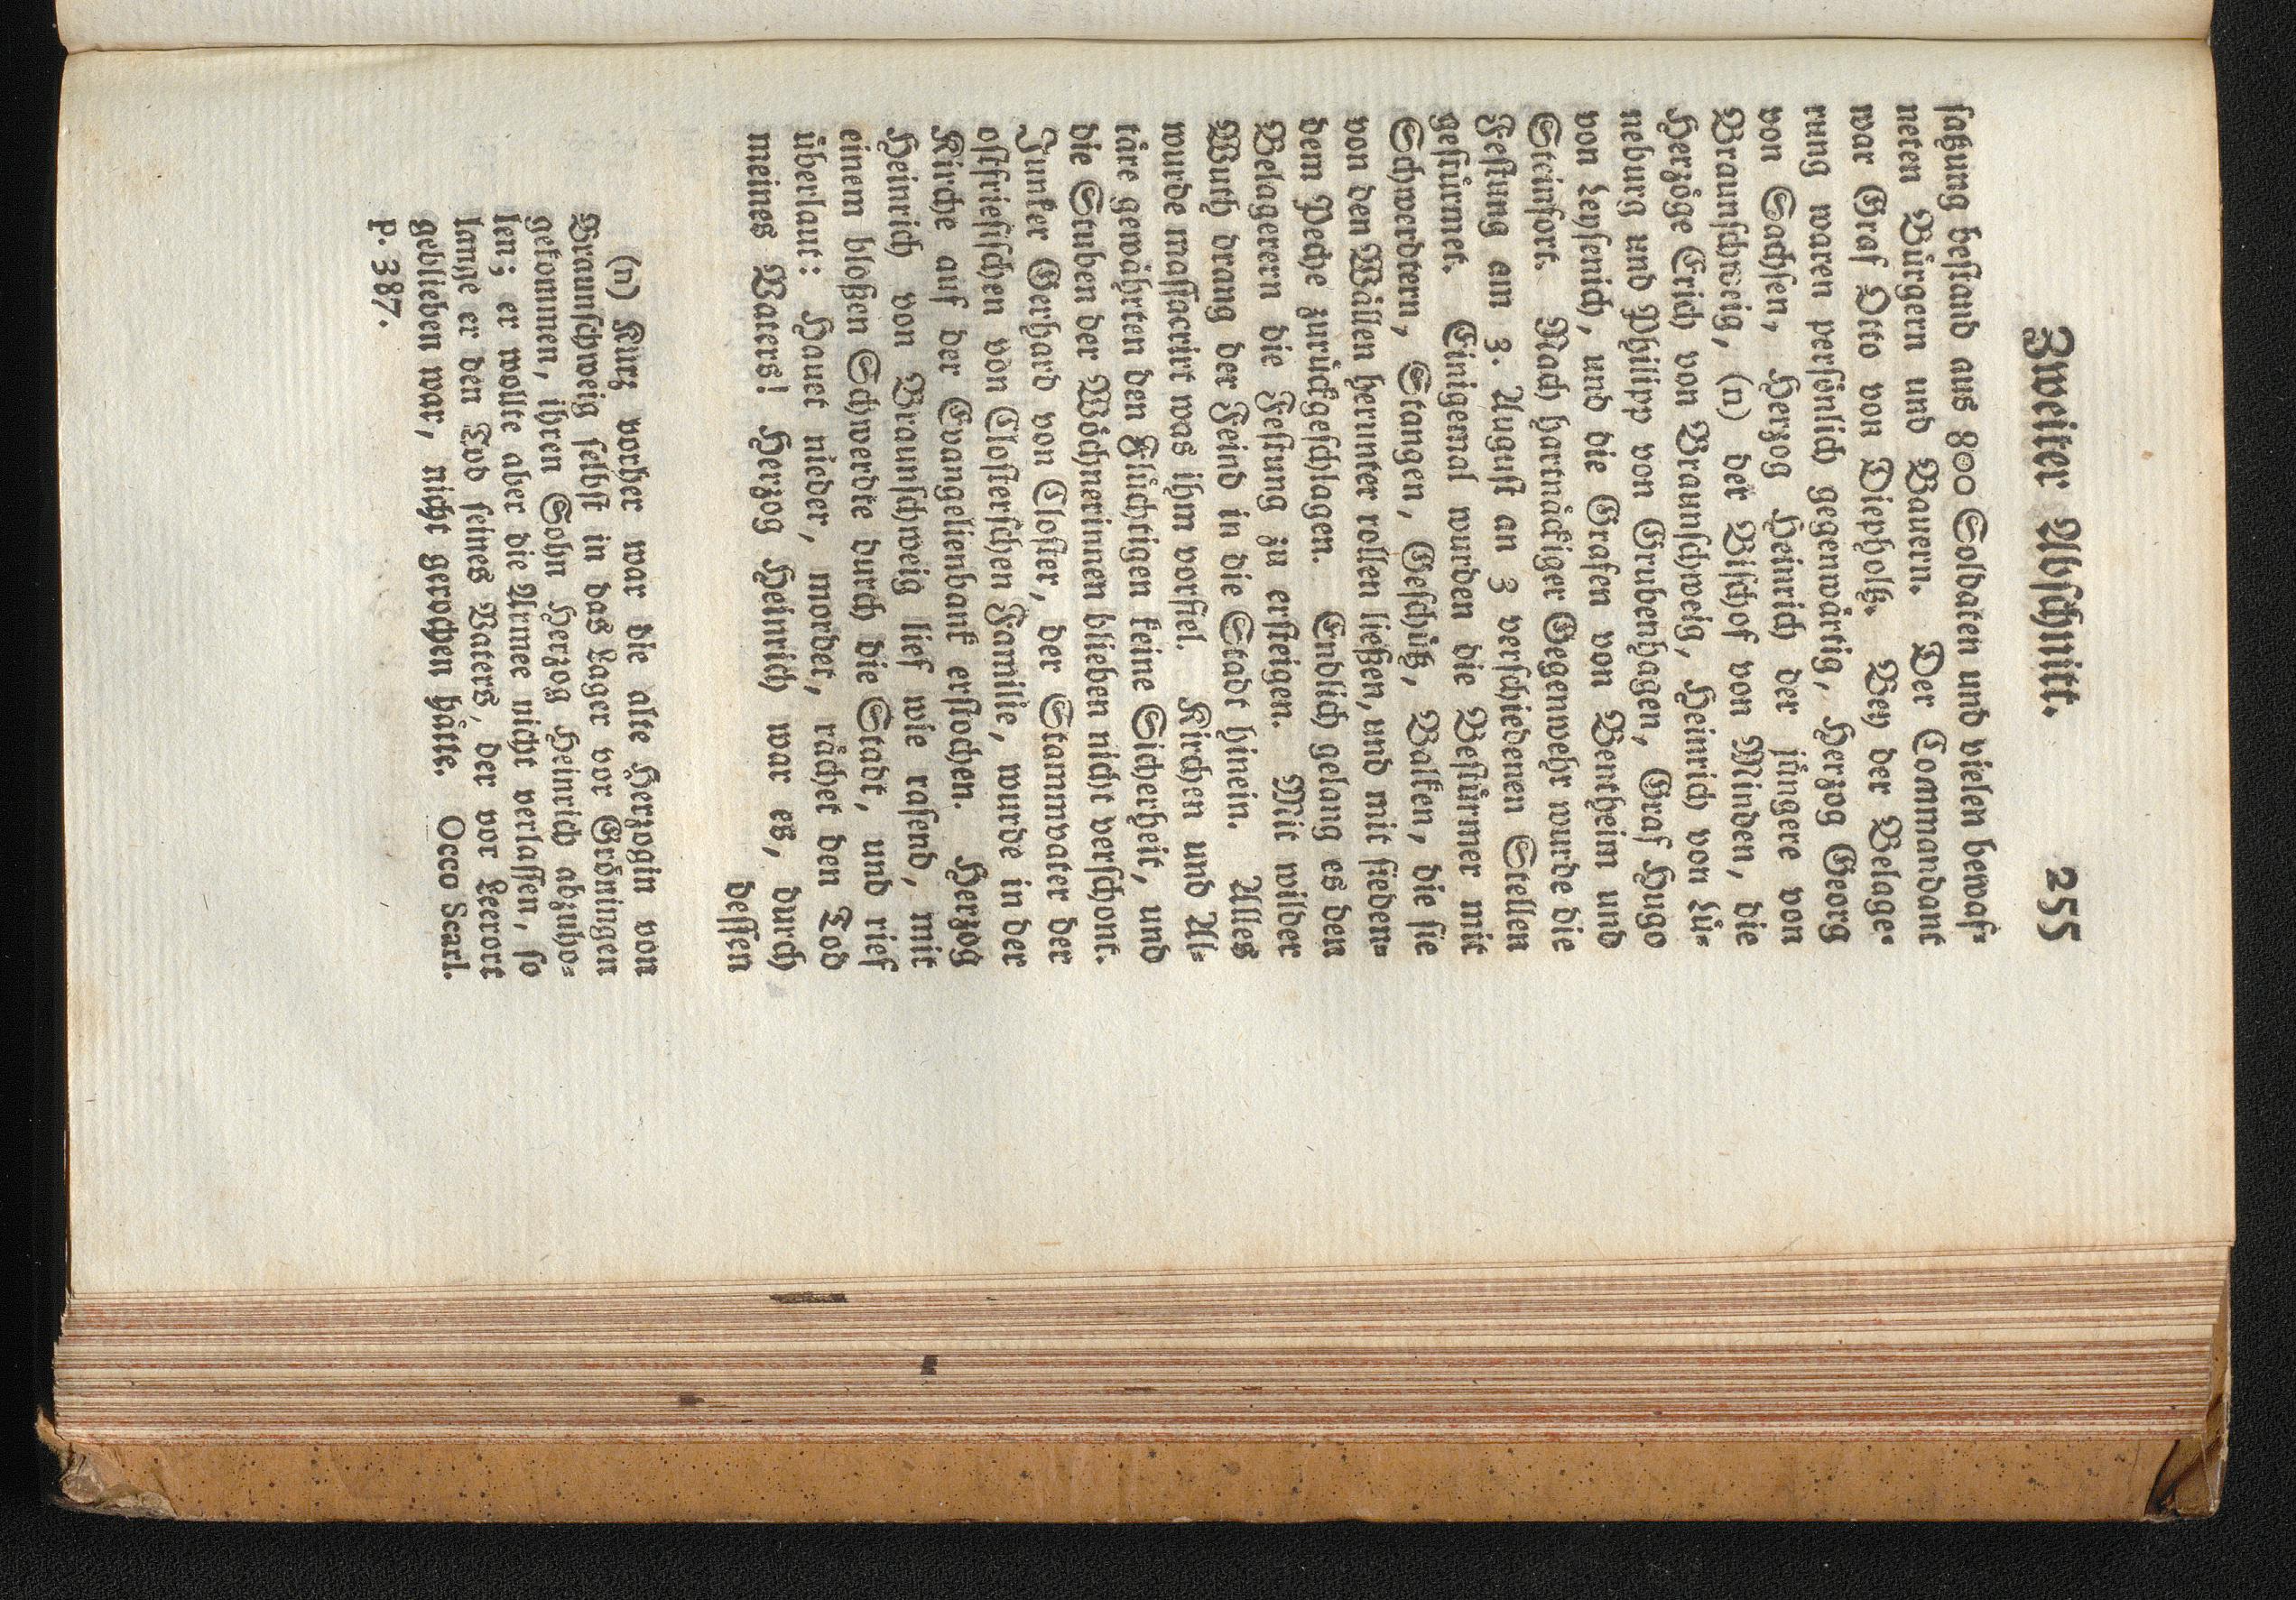 Zweiter Abschnitt. 255
satzung bestand aus 800 Soldaten und vielen bewaf-
neten Bürgern und Bauern. Der Commandant
war Graf Otto von Diepholtz. Bey der Belage-
rung waren persönlich gegenwärtig, Herzog Georg
von Sachsen, Herzog Heinrich der jüngere von
Braunschweig, (n) der Bischof von Minden, die
Herzöge Erich von Braunschweig, Heinrich von Lü-
neburg und Philipp von Grubenhagen, Graf Hugo
von Leysenich, und die Grafen von Bentheim und
Steinfort. Nach hartnäckiger Gegenwehr wurde die
Festung am 3. August an 3 verschiedenen Stellen
gestürmet. Einigemal wurden die Bestürmer mit
Schwerdtern, Stangen, Geschütz, Balken, die sie
von den Wällen herunter rollen ließen, und mit sieden-
dem Peche zurückgeschlagen. Endlich gelang es den
Belagerern die Festung zu ersteigen. Mit wilder
Wuth drang der Feind in die Stadt hinein. Alles
wurde massacrirt was ihm vorfiel. Kirchen und Al-
täre gewährten den Flüchtigen keine Sicherheit, und
die Stuben der Wöchnerinnen blieben nicht verschont.
Junker Gerhard von Closter, der Stammvater der
ostfriesischen von Closterschen Familie, wurde in der
Kirche auf der Evangelienbank erstochen. Herzog
Heinrich von Braunschweig lief wie rasend, mit
einem bloßen Schwerdte durch die Stadt, und rief
überlaut: Hauet nieder, mordet, rächet den Tod
meines Vaters! Herzog Heinrich war es, durch
dessen
(n) Kurz vorher war die alte Herzogin von
Braunschweig selbst in das Lager vor Gröningen
gekommen, ihren Sohn Herzog Heinrich abzuho-
len; er wollte aber die Armee nicht verlassen, so
lange er den Tod seines Vaters, der vor Leerort
geblieben war, nicht gerochen hätte. Occo Scarl.
p. 387.